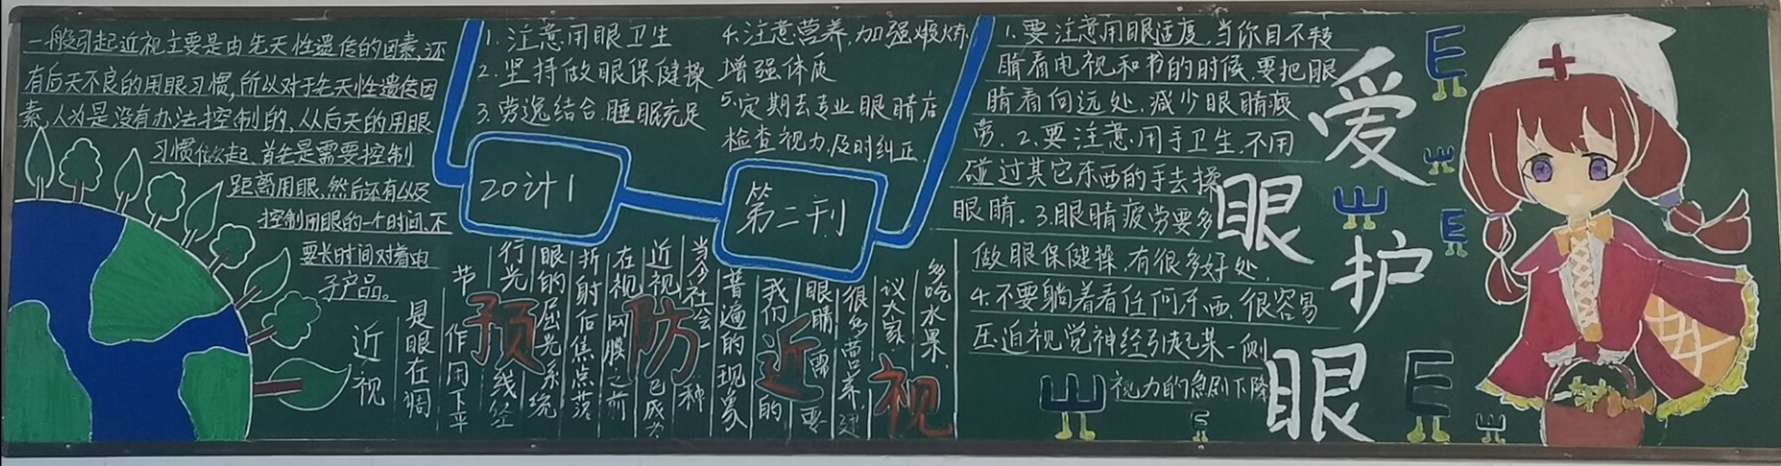 一般引起近视主要是由先天性遗传的因素,还
有后天不良的用眼习惯,所以对于先天性遗传因
素,人为是没有办法控制的,从后天的用眼
习惯做起,首先是需要控制
距离用眼,然后还有以及
控制用眼的一个时间,不
要长时间对着电
子产品。
1.注意用眼卫生
2.坚持做眼保健操
3.劳逸结合,睡眠充足
4.注意营养,加强煅炼
增强体质
5.定期去专业眼睛店
检查视力,及时纠正.
20计1
第二刊
近视
是眼在调
节作用下平
行光线经
眼的屈光系统
折射后焦点落
在视网膜之前
近视已成为
当今社会一种
普遍的现象
我们的
眼睛需要
很多营养,建
议大家
多吃水果.
预防近视
1.要注意用眼适度,当你目不转
睛看电视和书的时候,要把眼
睛看向远处,减少眼睛疲
劳.2.要注意用手卫生,不用
碰过其它东西的手去揉
眼睛。3.眼睛疲劳要多
做眼保健操,有很多好处.
4.不要躺着看任何东西,很容易
压迫视觉神经引起某一侧
视力的急剧下降
爱眼护眼
E
E
E
E
E
E
E
E